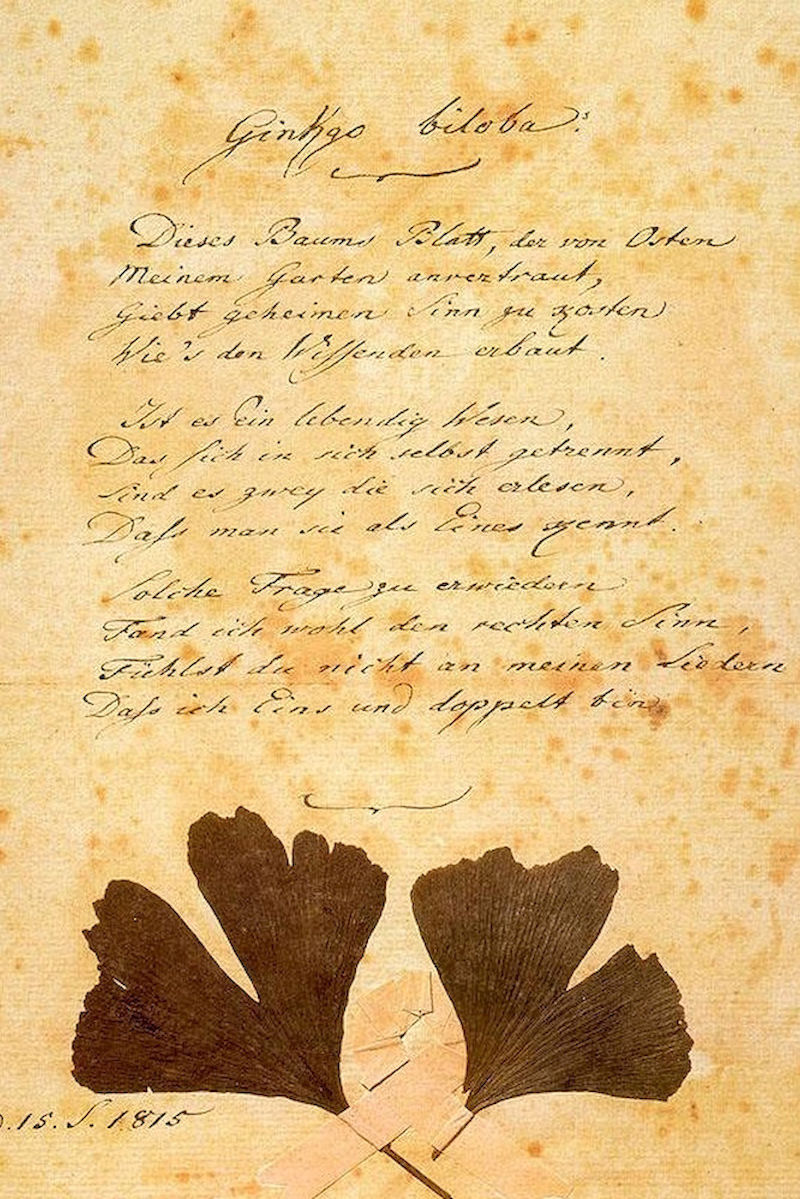 Ginkgo biloba.
Dieses Baums Blatt, der von Osten
Meinem Garten anvertraut,
Giebt geheimen Sinn zu kosten
Wie's den Wissenden erbaut.
Ist es Ein lebendig Wesen,
Das sich in sich selbst getrennt,
Sind es zwey die sich erlesen,
Dass man sie als Eines kennt.
Solche Frage zu erwiedern
Fand ich wohl den rechten Sinn,
Fühlst du nicht an meinen Liedern
Dass ich Eins und doppelt bin
D. 15. S. 1815